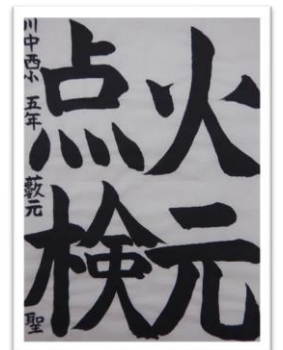 火元
点検
川中西小 五年 藪元 聖